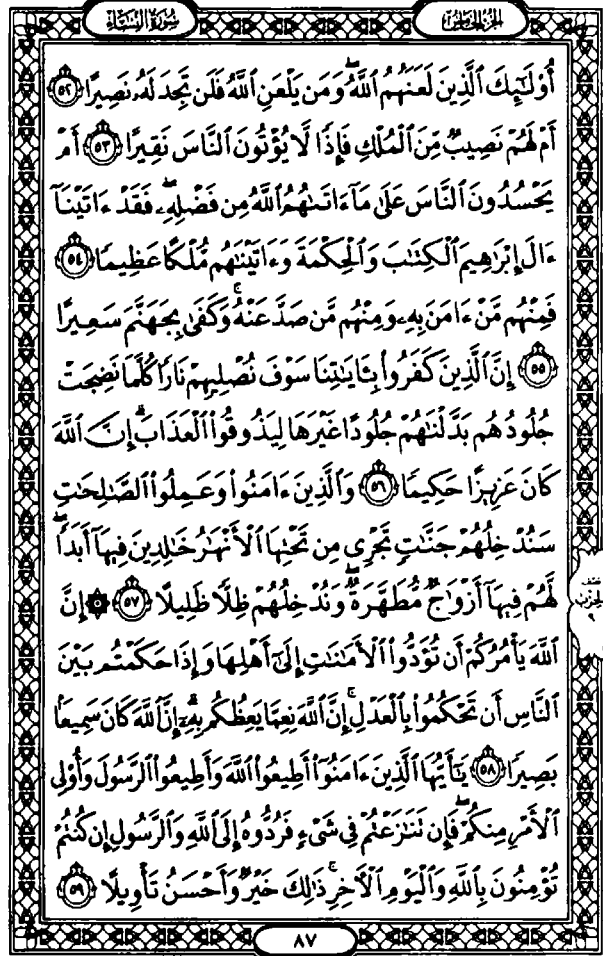 الجزء الخامس
سورة النساء
أُوْلَٰٓئِكَ ٱلَّذِينَ لَعَنَهُمُ ٱللَّهُۖ وَمَن يَلْعَنِ ٱللَّهُ فَلَن تَجِدَ لَهُۥ نَصِيرًا ٥٢
أَمْ لَهُمْ نَصِيبٌ مِّنَ ٱلْمُلْكِ فَإِذًا لَّا يُؤْتُونَ ٱلنَّاسَ نَقِيرًا ٥٣ أَمْ
يَحْسُدُونَ ٱلنَّاسَ عَلَىٰ مَآ ءَاتَىٰهُمُ ٱللَّهُ مِن فَضْلِهِۦۖ فَقَدْ ءَاتَيْنَآ
ءَالَ إِبْرَٰهِيمَ ٱلْكِتَٰبَ وَٱلْحِكْمَةَ وَءَاتَيْنَٰهُم مُّلْكًا عَظِيمًا ٥٤
فَمِنْهُم مَّنْ ءَامَنَ بِهِۦ وَمِنْهُم مَّن صَدَّ عَنْهُۚ وَكَفَىٰ بِجَهَنَّمَ سَعِيرًا
٥٥ إِنَّ ٱلَّذِينَ كَفَرُواْ بِـَٔايَٰتِنَا سَوْفَ نُصْلِيهِمْ نَارًا كُلَّمَا نَضِجَتْ
جُلُودُهُم بَدَّلْنَٰهُمْ جُلُودًا غَيْرَهَا لِيَذُوقُواْ ٱلْعَذَابَۗ إِنَّ ٱللَّهَ
كَانَ عَزِيزًا حَكِيمًا ٥٦ وَٱلَّذِينَ ءَامَنُواْ وَعَمِلُواْ ٱلصَّٰلِحَٰتِ
سَنُدْخِلُهُمْ جَنَّٰتٍ تَجْرِى مِن تَحْتِهَا ٱلْأَنْهَٰرُ خَٰلِدِينَ فِيهَآ أَبَدًاۖ
لَّهُمْ فِيهَآ أَزْوَٰجٌ مُّطَهَّرَةٌۖ وَنُدْخِلُهُمْ ظِلًّا ظَلِيلًا ٥٧ ۞ إِنَّ
ٱللَّهَ يَأْمُرُكُمْ أَن تُؤَدُّواْ ٱلْأَمَٰنَٰتِ إِلَىٰٓ أَهْلِهَا وَإِذَا حَكَمْتُم بَيْنَ
ٱلنَّاسِ أَن تَحْكُمُواْ بِٱلْعَدْلِۚ إِنَّ ٱللَّهَ نِعِمَّا يَعِظُكُم بِهِۦٓۗ إِنَّ ٱللَّهَ كَانَ سَمِيعًۢا
بَصِيرًا ٥٨ يَٰٓأَيُّهَا ٱلَّذِينَ ءَامَنُوٓاْ أَطِيعُواْ ٱللَّهَ وَأَطِيعُواْ ٱلرَّسُولَ وَأُوْلِى
ٱلْأَمْرِ مِنكُمْۖ فَإِن تَنَٰزَعْتُمْ فِى شَىْءٍ فَرُدُّوهُ إِلَى ٱللَّهِ وَٱلرَّسُولِ إِن كُنتُمْ
تُؤْمِنُونَ بِٱللَّهِ وَٱلْيَوْمِ ٱلْءَاخِرِۚ ذَٰلِكَ خَيْرٌ وَأَحْسَنُ تَأْوِيلًا ٥٩
نصف
الحزب
٩
٨٧